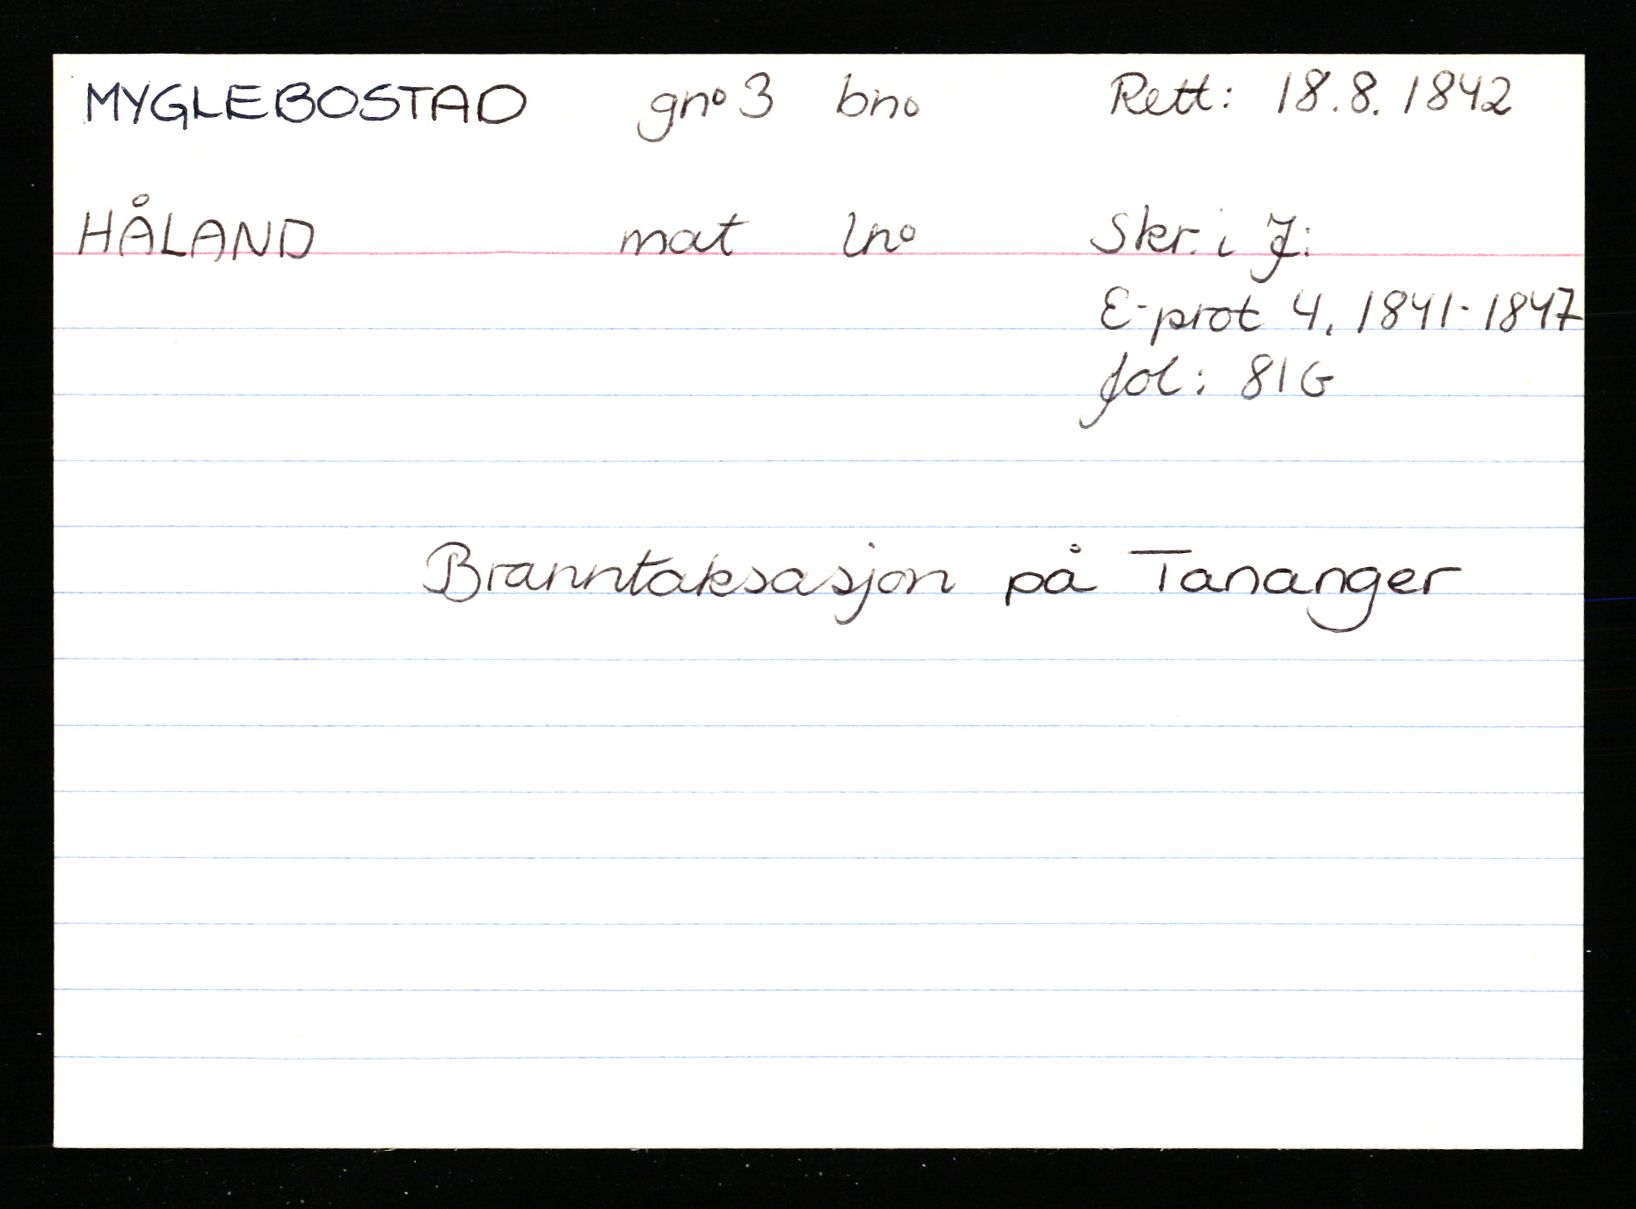 MYGLEBOSTAD gno 3 bno Rett: 18.8.1842
HÅLAND mat lno Skr. i J:
E-prot 4, 1841-1847
fol: 81G
Branntaksasjon på Tananger